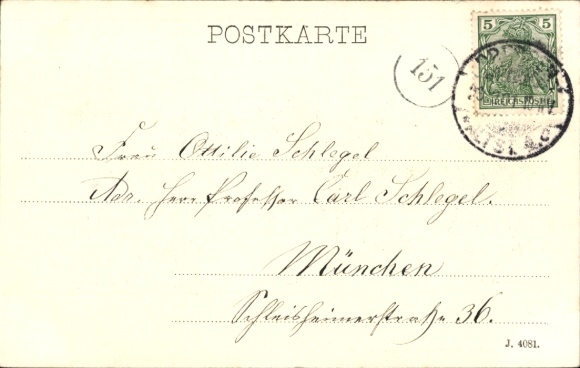 POSTKARTE
5 5
REICHSPOST
151
ALTST.
Frau Ottilie Schlegel
Adr. Herr Professor Carl Schlegel.
München
Schleisheimerstraße 36.
J. 4081.